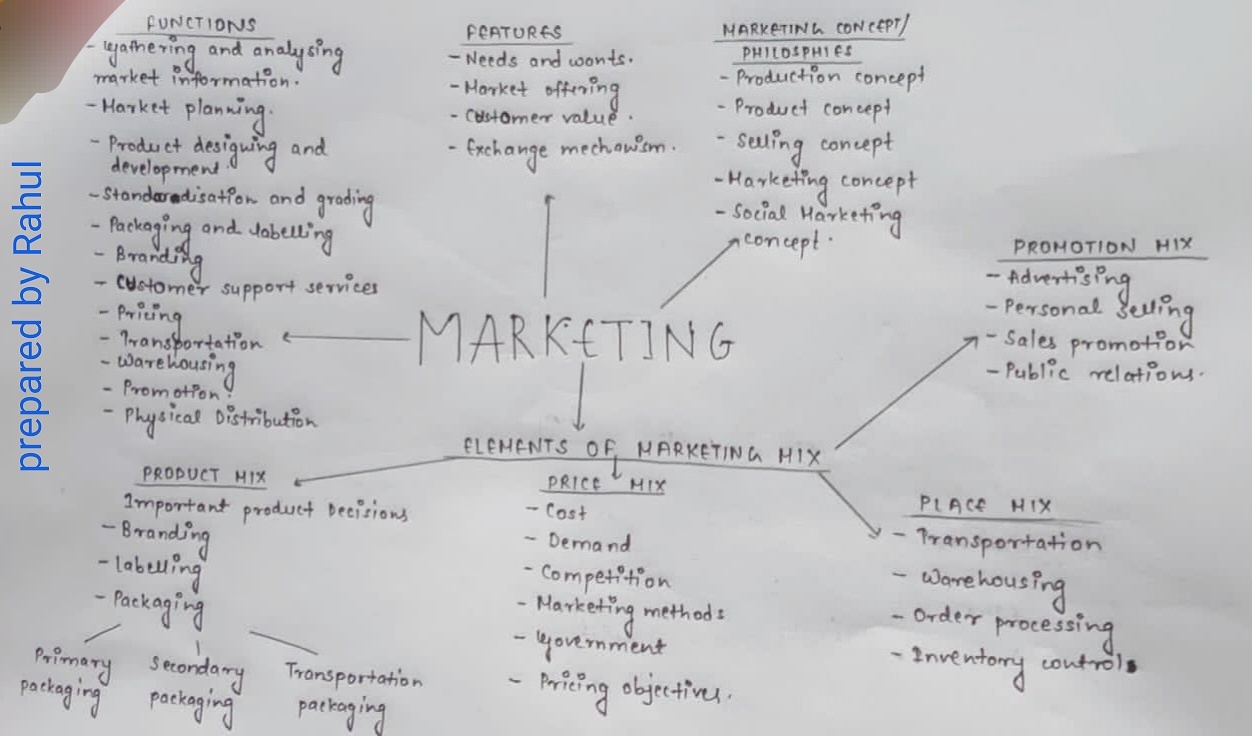 FUNCTIONS
- Gathering and analysing
market information.
- Market planning.
- Product designing and
development.
- Standardisation and grading
- Packaging and labelling
- Branding
- Customer support services
- Pricing
- Transportation
- Warehousing
- Promotion.
- Physical Distribution
FEATURES
- Needs and wants.
- Market offering
- Customer value.
- Exchange mechanism.
MARKETING CONCEPT/
PHILOSPHIES
- Production concept
- Product concept
- Selling concept
- Marketing concept
- Social Marketing
concept.
MARKETING
PROMOTION MIX
- Advertising
- Personal Selling
- Sales promotion
- Public relations.
ELEMENTS OF MARKETING MIX
PRODUCT MIX
Important product Decisions
- Branding
- labelling
- Packaging
Primary
packaging
Secondary
packaging
Transportation
packaging
PRICE MIX
- Cost
- Demand
- Competition
- Marketing methods
- Government
- Pricing objectives.
PLACE MIX
- Transportation
- Warehousing
- Order processing
- Inventory controls
prepared by Rahul